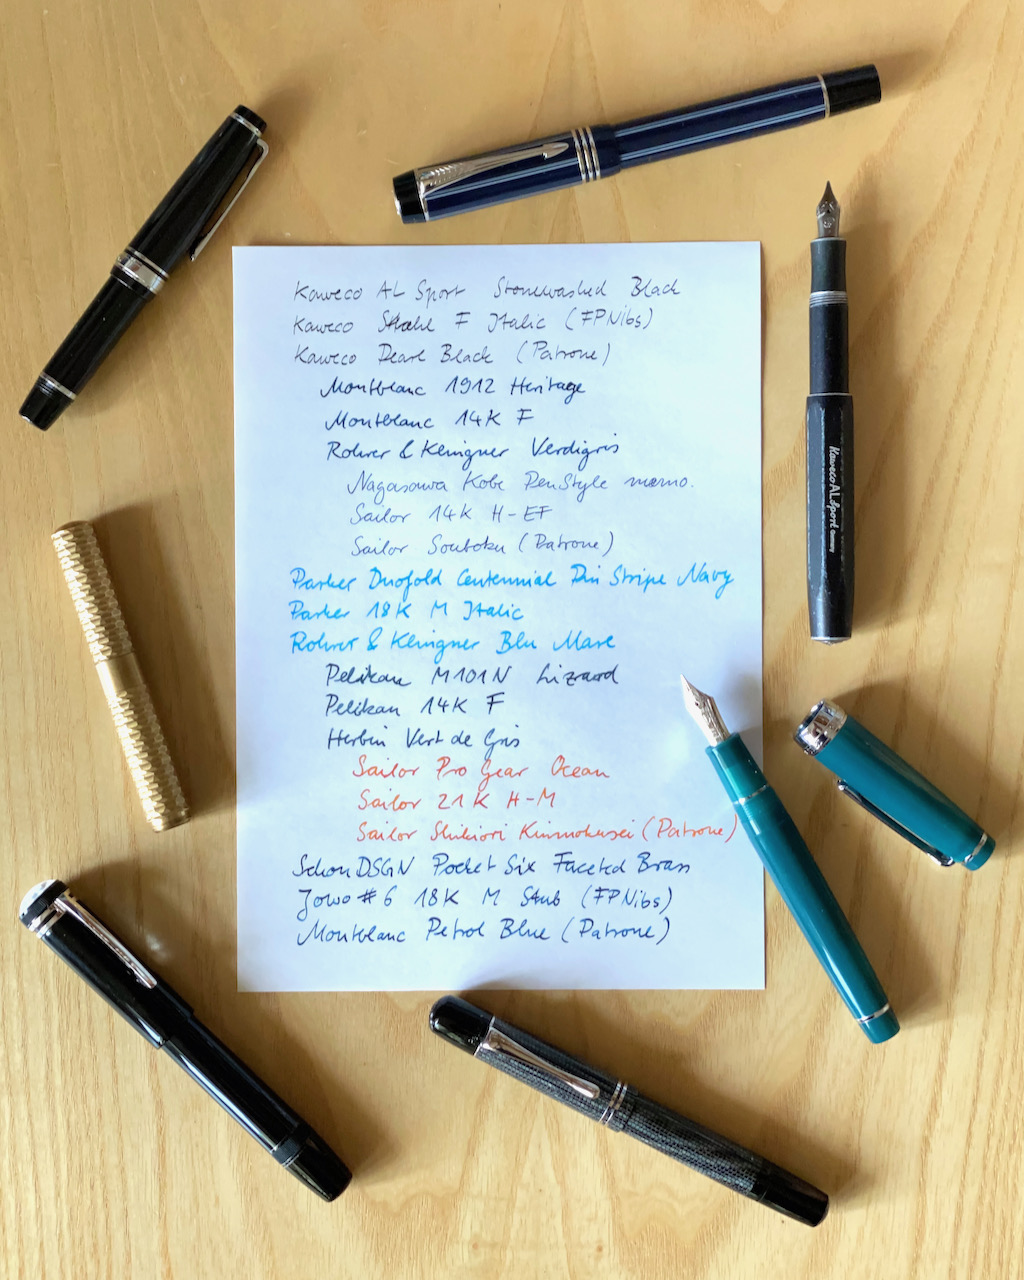 Kaweco AL Sport Stonewashed Black
Kaweco Stahl F Italic (FPNibs)
Kaweco Pearl Black (Patrone)
Montblanc 1912 Heritage
Montblanc 14K F
Rohrer & Klingner Verdigris
Nagasawa Kobe PenStyle memo.
Sailor 14K H-EF
Sailor Souboku (Patrone)
Parker Duofold Centennial Pin Stripe Navy
Parker 18K M Italic
Rohrer & Klingner Blu Mare
Pelikan M101N Lizard
Pelikan 14K F
Herbin Vert de Gris
Sailor Pro Gear Ocean
Sailor 21K H-M
Sailor Shikiori Kinmokusei (Patrone)
Schon DSGN Pocket Six Faceted Brass
Jowo #6 18K M Stub (FPNibs)
Montblanc Petrol Blue (Patrone)
Kaweco AL Sport Germany